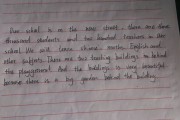 Our school is on the   street. There are three
thousand students and two hundred teachers in our
school. We will learn Chinese, maths, English and
other subjects. There are two teaching buildings
the playground. And the buildings is very beautiful
because there is a big garden behind the building.